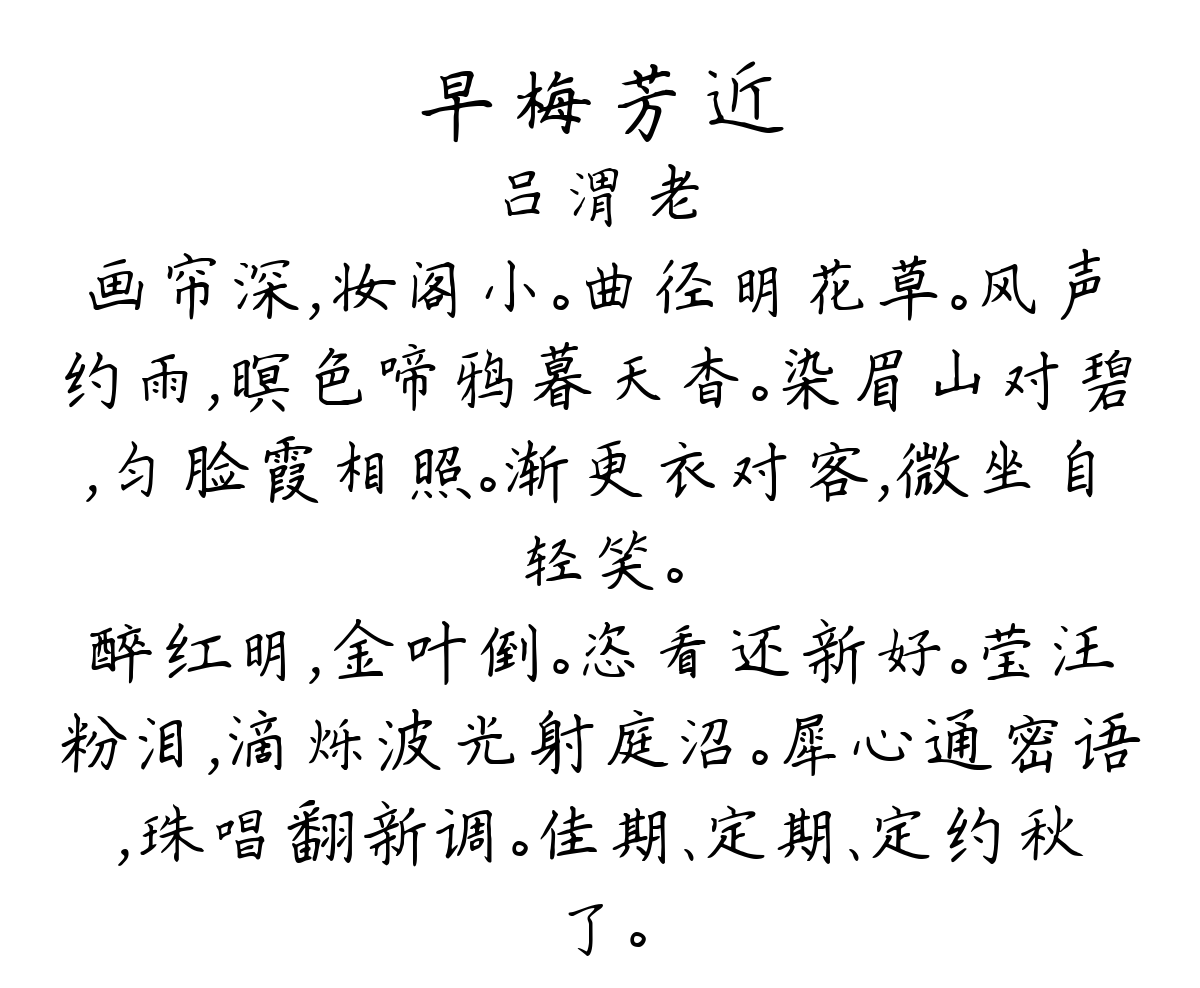 早梅芳近
吕渭老
画帘深,妆阁小。曲径明花草。风声
约雨,暝色啼鸦暮天杳。染眉山对碧
,匀脸霞相照。渐更衣对客,微坐自
轻笑。
醉红明,金叶倒。恣看还新好。莹汪
粉泪,滴烁波光射庭沼。犀心通密语
,珠唱翻新调。佳期、定期、定约秋
了。